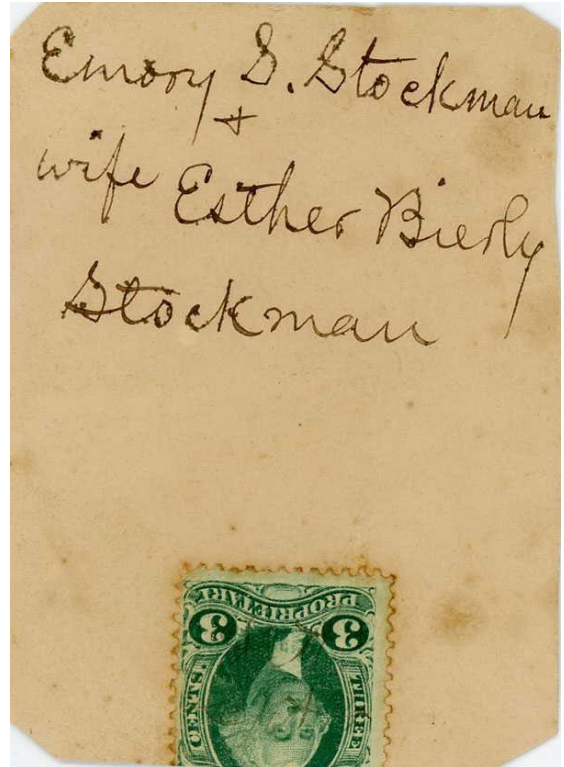 Emory S. Stockman
+
wife Esther Bierly
Stockman
CENTS. 3 PROPRIETARY 3 THREE